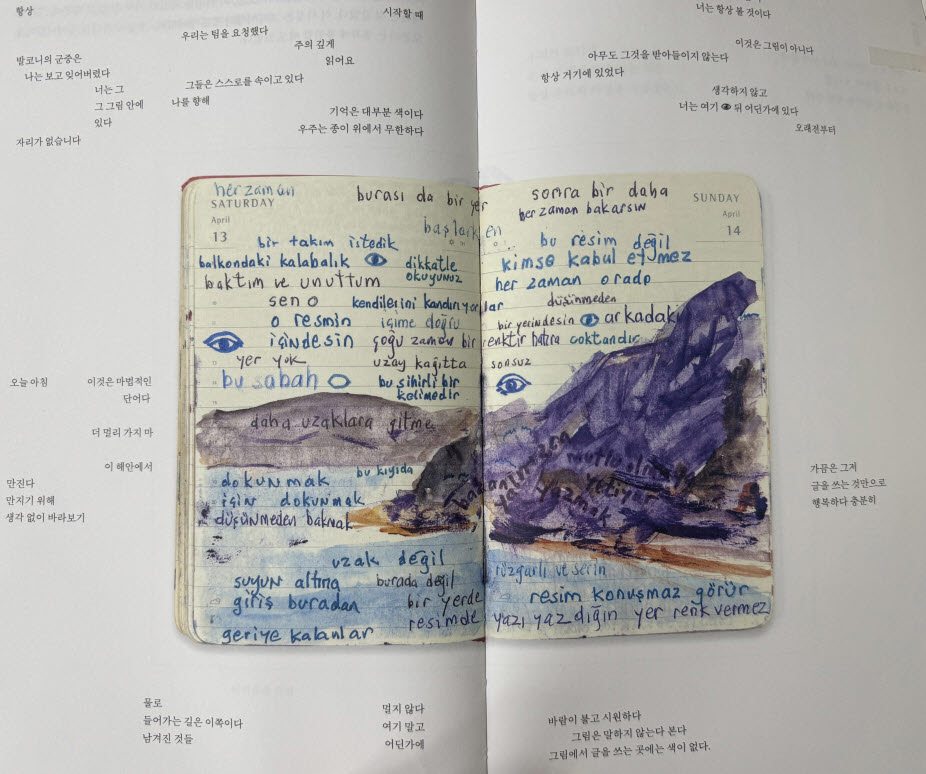 항상
시작할 때
우리는 팀을 요청했다
주의 깊게
발코니의 군중은
읽어요
나는 보고 잊어버렸다
너는 그
그들은 스스로를 속이고 있다
그 그림 안에
나를 향해
있다
기억은 대부분 색이다
우주는 종이 위에서 무한하다
자리가 없습니다
너는 항상 볼 것이다
이것은 그림이 아니다
아무도 그것을 받아들이지 않는다
항상 거기에 있었다
생각하지 않고
너는 여기 뒤 어딘가에 있다
오래전부터
her zaman
burası da bir yer
SATURDAY
April
13
başlarken
bir takım istedik
balkondaki kalabalık
dikkatle
okuyunuz
baktım ve unuttum
sen o
kendilerini kandırıyorlar
o resmin
içime doğru
içindesin
çoğu zaman bir renktir hatıra
yer yok
uzay kağıtta
bu sabah
bu sihirli bir
kelimedir
daha uzaklara gitme
bu kıyıda
dokunmak
için dokunmak
düşünmeden bakmak
uzak değil
suyun altına
burada değil
giriş buradan
bir yerde
resimde
geriye kalanlar
sonra bir daha
SUNDAY
her zaman bakarsın
April
14
bu resim değil
kimse kabul etmez
her zaman orada
düşünmeden
bir yerindesin
arkadaki
çoktandır
sonsuz
mutlu
yetiyor
yazmak
rüzgarlı ve serin
resim konuşmaz görür
yazı yazdığın yer renk vermez
오늘 아침
이것은 마법적인
단어다
더 멀리 가지 마
이 해안에서
만진다
만지기 위해
생각 없이 바라보기
가끔은 그저
글을 쓰는 것만으로
행복하다 충분히
물로
들어가는 길은 이쪽이다
남겨진 것들
멀지 않다
여기 말고
어딘가에
바람이 불고 시원하다
그림은 말하지 않는다 본다
그림에서 글을 쓰는 곳에는 색이 없다.